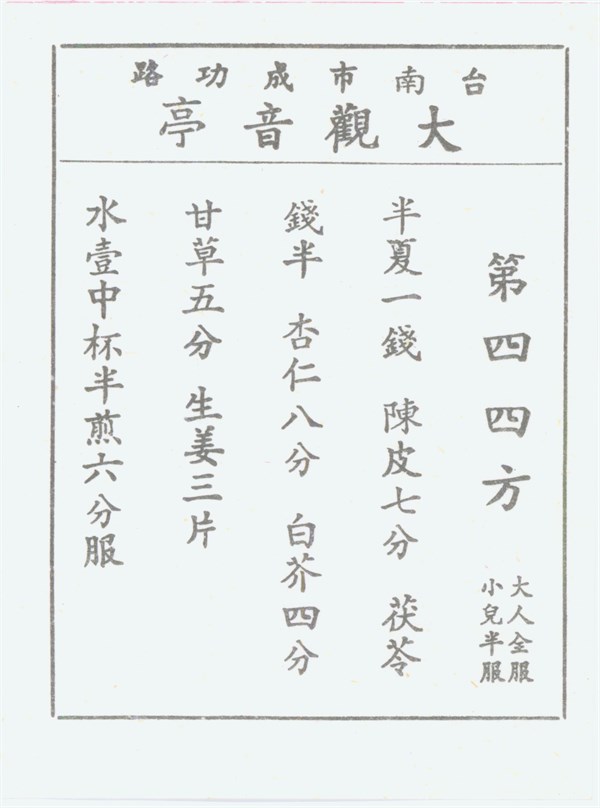 台南市成功路
大觀音亭
第四四方
大人全服
小兒半服
半夏一錢 陳皮七分 茯苓
錢半 杏仁八分 白芥四分
甘草五分 生姜三片
水壹中杯半煎六分服